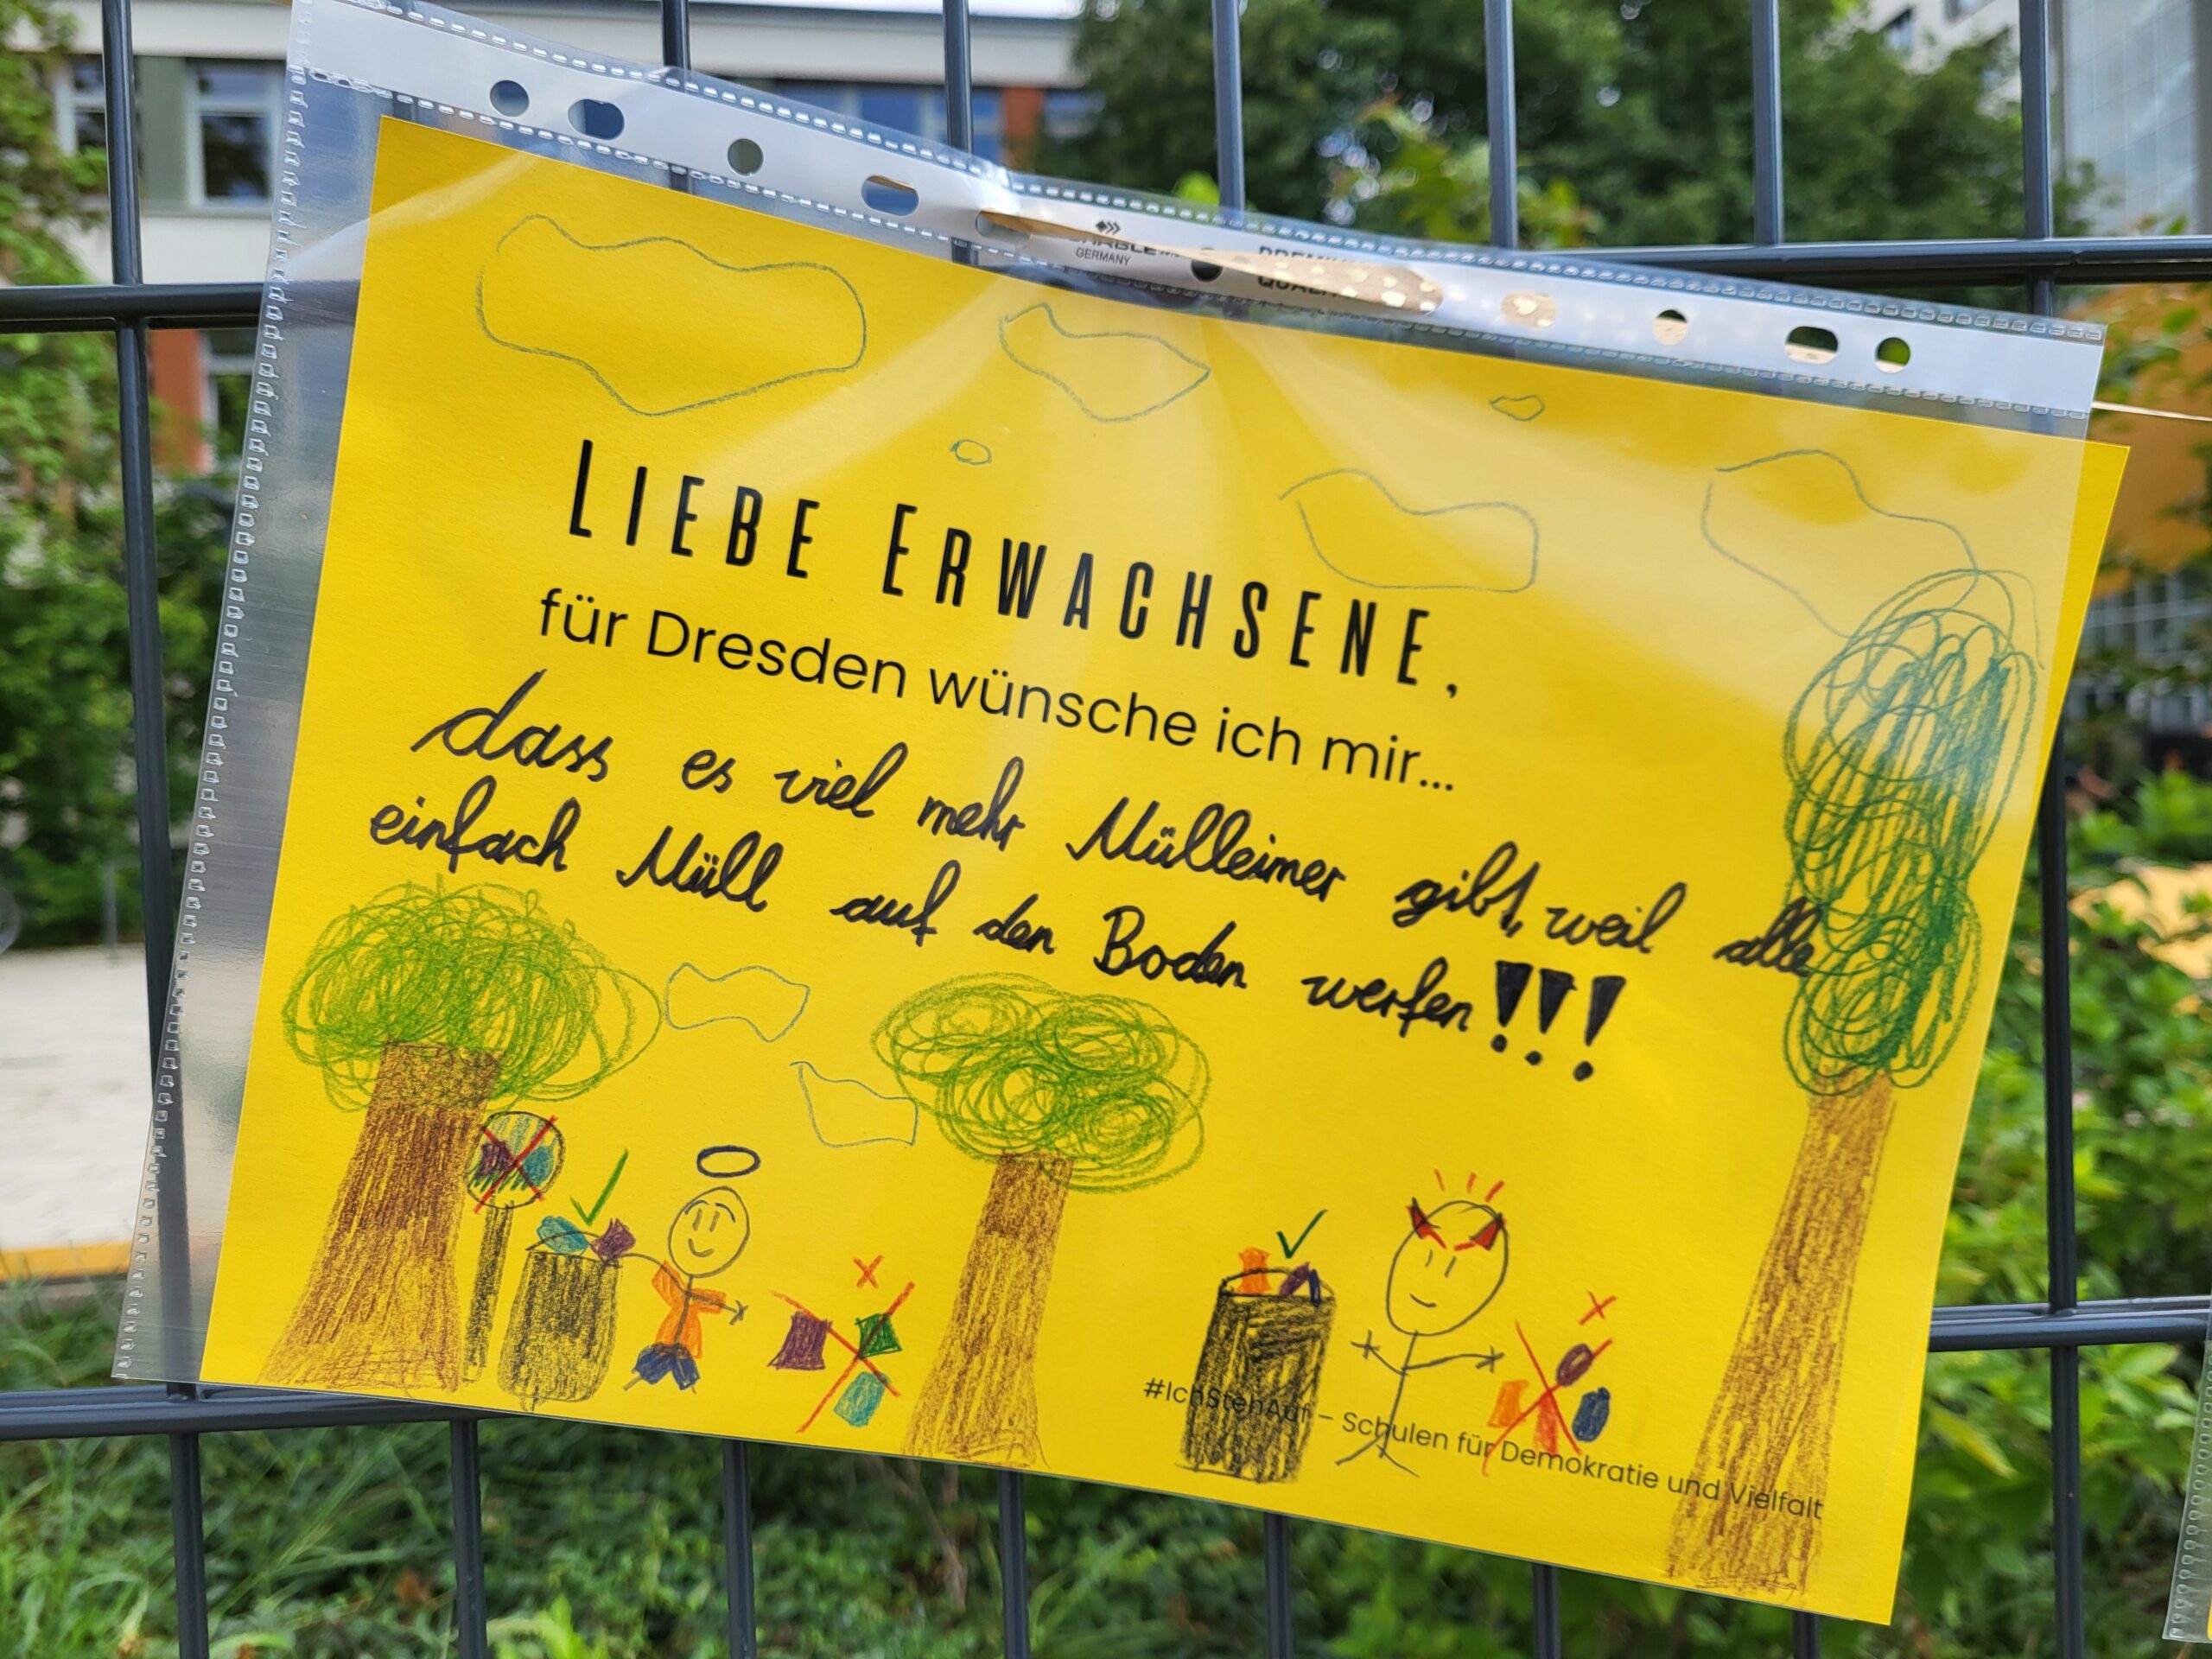 GERMANY
LIEBE ERWACHSENE,
für Dresden wünsche ich mir...
dass es viel mehr Mülleimer gibt, weil alle
einfach Müll auf den Boden werfen!!!
#IchStehAuf – Schulen für Demokratie und Vielfalt